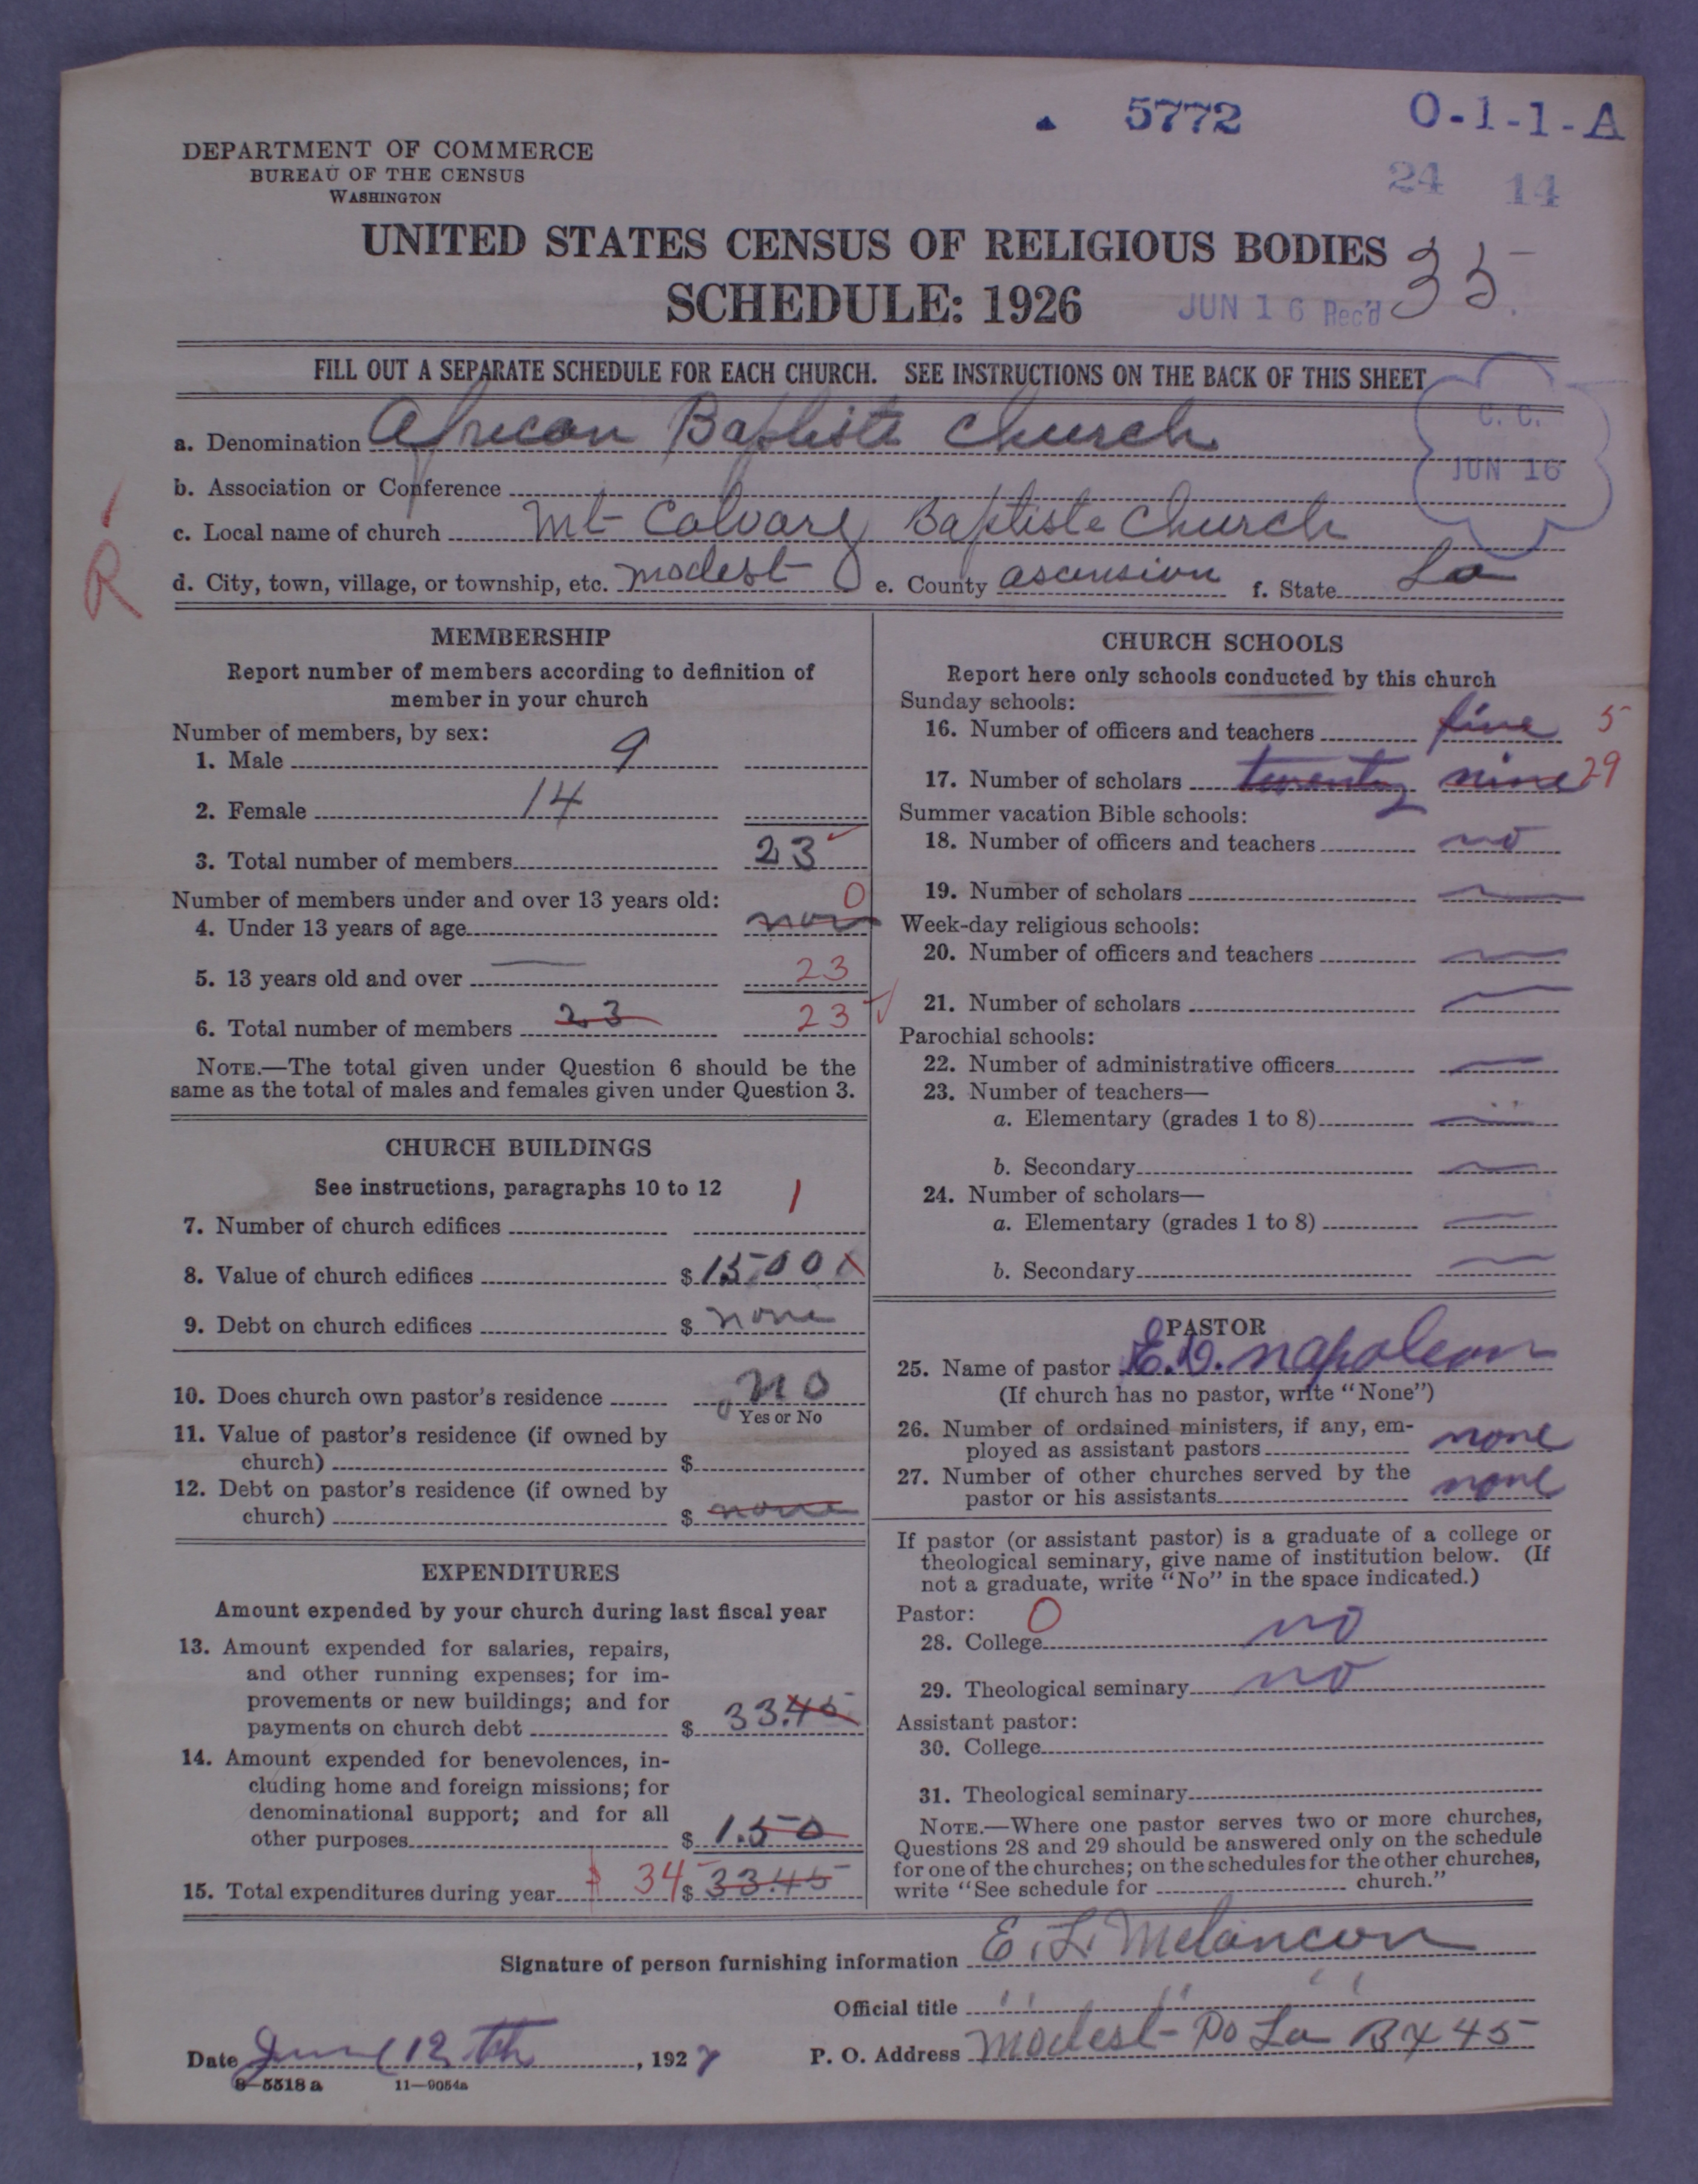 5772 O-1-1-A
24 14
DEPARTMENT OF COMMERCE
BUREAU OF THE CENSUS
WASHINGTON
UNITED STATES CENSUS OF RELIGIOUS BODIES
35
SCHEDULE: 1926
JUN 16 Rec'd
FILL OUT A SEPARATE SCHEDULE FOR EACH CHURCH. SEE INSTRUCTIONS ON THE BACK OF THIS SHEET
C. C.
JUN 16
a. Denomination African Baptiste Church
b. Association or Conference
c. Local name of church Mt Calvary Baptiste Church
d. City, town, village, or township, etc. Modest e. County Ascension f. State La
R
MEMBERSHIP
Report number of members according to definition of
member in your church
Number of members, by sex:
1. Male 9
2. Female 14
3. Total number of members 23
Number of members under and over 13 years old: 0
4. Under 13 years of age non
5. 13 years old and over 23
6. Total number of members 23 23
NOTE.—The total given under Question 6 should be the
same as the total of males and females given under Question 3.
CHURCH BUILDINGS
See instructions, paragraphs 10 to 12
7. Number of church edifices 1
8. Value of church edifices $ 1500
9. Debt on church edifices $ none
10. Does church own pastor's residence no
Yes or No
11. Value of pastor's residence (if owned by
church) $
12. Debt on pastor's residence (if owned by
church) $ none
EXPENDITURES
Amount expended by your church during last fiscal year
13. Amount expended for salaries, repairs,
and other running expenses; for im-
provements or new buildings; and for
payments on church debt $ 33.45
14. Amount expended for benevolences, in-
cluding home and foreign missions; for
denominational support; and for all
other purposes $ 1.50
15. Total expenditures during year 34 $ 33.45
CHURCH SCHOOLS
Report here only schools conducted by this church
Sunday schools:
16. Number of officers and teachers five 5
17. Number of scholars twenty nine 29
Summer vacation Bible schools:
18. Number of officers and teachers no
19. Number of scholars
Week-day religious schools:
20. Number of officers and teachers
21. Number of scholars
Parochial schools:
22. Number of administrative officers
23. Number of teachers—
a. Elementary (grades 1 to 8)
b. Secondary
24. Number of scholars—
a. Elementary (grades 1 to 8)
b. Secondary
PASTOR
25. Name of pastor E.D. napoleon
(If church has no pastor, write "None")
26. Number of ordained ministers, if any, em-
ployed as assistant pastors none
27. Number of other churches served by the
pastor or his assistants none
If pastor (or assistant pastor) is a graduate of a college or
theological seminary, give name of institution below. (If
not a graduate, write "No" in the space indicated.)
Pastor: 0
28. College no
29. Theological seminary no
Assistant pastor:
30. College
31. Theological seminary
NOTE.—Where one pastor serves two or more churches,
Questions 28 and 29 should be answered only on the schedule
for one of the churches; on the schedules for the other churches,
write "See schedule for church."
Signature of person furnishing information E. L. Melancon
Official title " " "
Date June 12th, 1927 P. O. Address Modest Po La Bx 45
8—5518 a 11—9054a